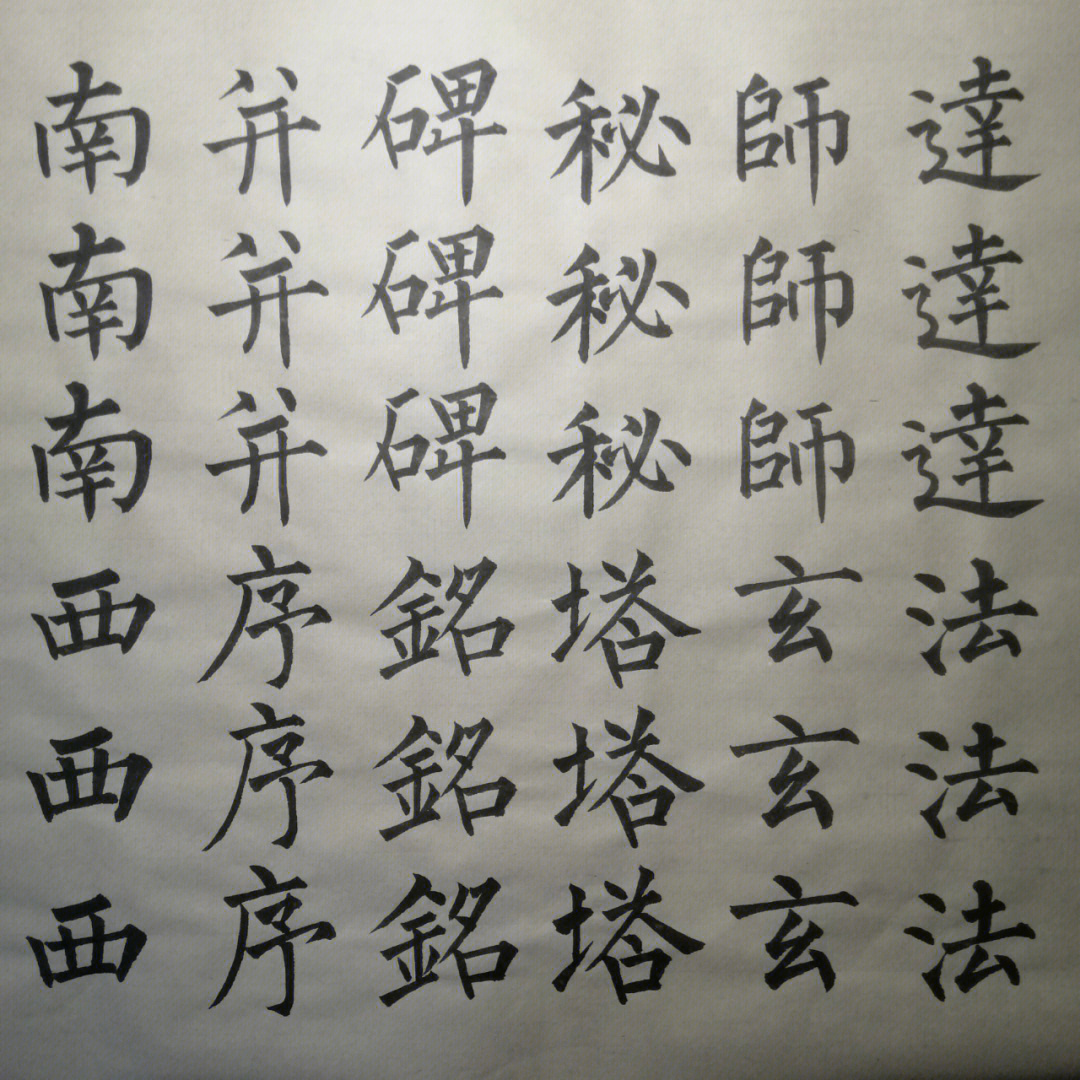 達達達法法法
師師師玄玄玄
秘秘秘塔塔塔
碑碑碑銘銘銘
并并并序序序
南南南西西西